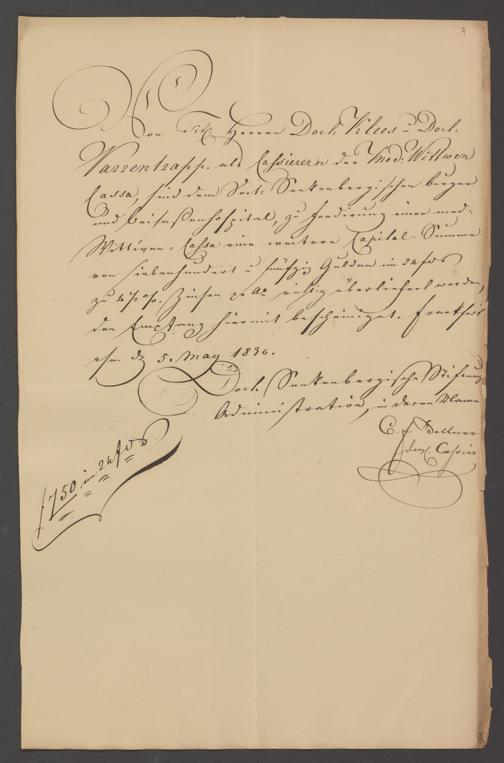 Von Tit. Herren Doct. Klees u. Doct.
Varrentrapp. als Cassierern der Med: Wittwen
Cassa, sind dem Doct: Senkenbergischen burger
und beisassenhospital, zu fundirung einer med:
Wittwen-Cassa eine weitere Capital-Summe
von siebenhundert u fünfzig Gulden im 24 f
zu 4 p. Co. Zinsen pr. ao. richtig überliefert worden,
den Empfang hiermit bescheiniget. Frankfurt
5. May 1830.
Doct. Senkenbergische Stiftungs
Administration, in deren Namen
C. F.
Cassier
f 750 im 24 f